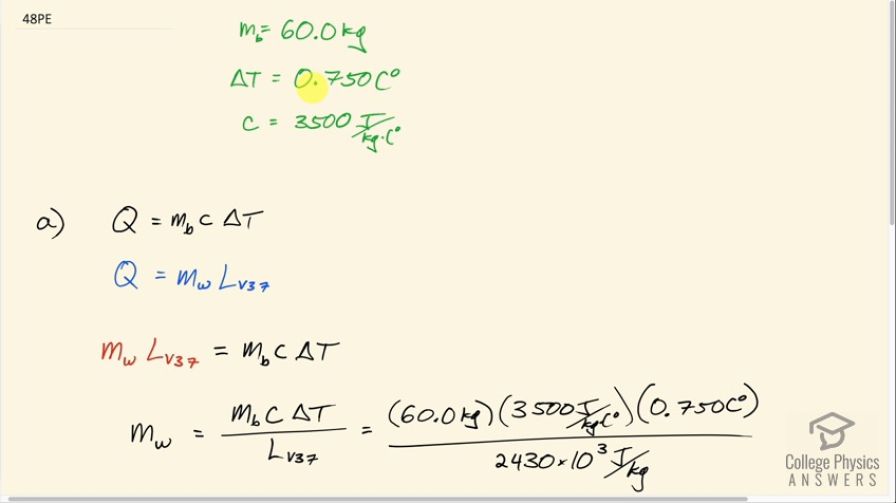 48PE
m_b = 60.0 kg
ΔT = 0.750 C°
c = 3500 J/kg·C°
a) Q = m_b c ΔT
Q = m_w L_v37
m_w L_v37 = m_b c ΔT
m_w = m_b c ΔT / L_v37 = (60.0 kg)(3500 J/kg·C°)(0.750 C°) / 2430×10³ J/kg
College Physics
ANSWERS